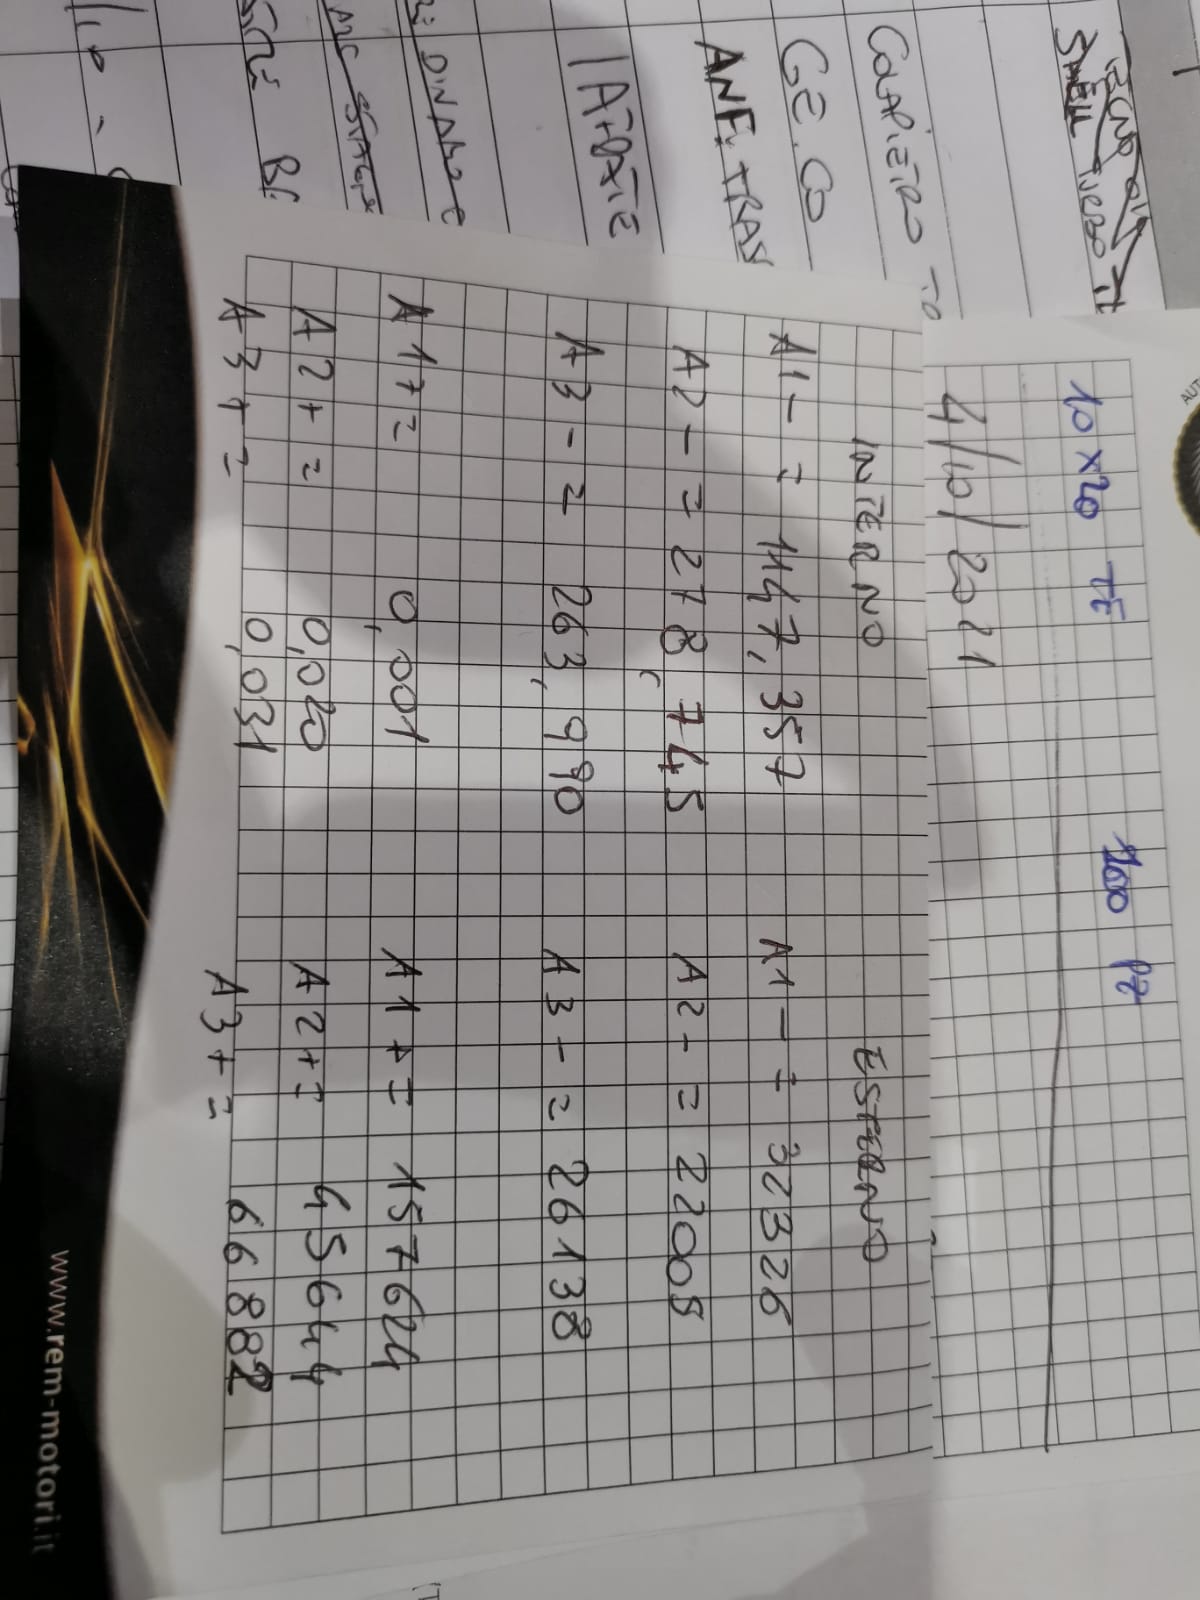 COLAPIETRO
GE.CO
10 x 20 TE 100 PZ
4/10/2021
INTERNO ESTERNO
A1 - = 1147,357 A1 - = 32326
A2 - = 278,745 A2 - = 22005
A3 - = 263,990 A3 - = 26138
A1 + = 0,001 A1 + = 157624
A2 + = 0,020 A2 + = 45644
A3 + = 0,031 A3 + = 66882
www.rem-motori.it